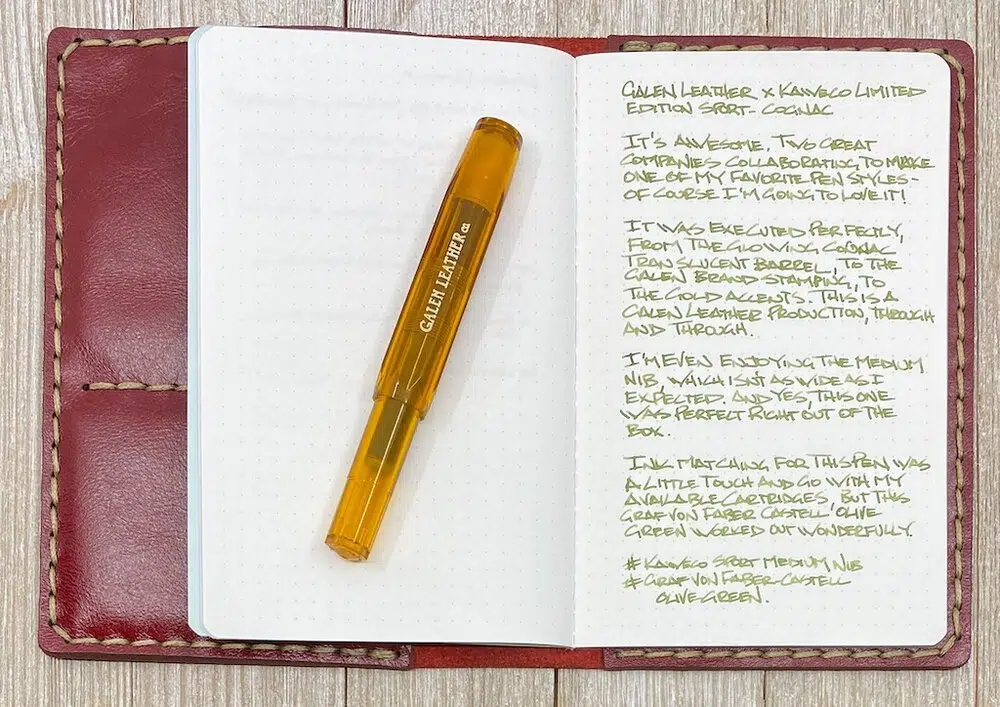 GALEN LEATHER
GALEN LEATHER x KAWECO LIMITED
EDITION SPORT- COGNAC
IT'S AWESOME, TWO GREAT
COMPANIES COLLABORATING TO MAKE
ONE OF MY FAVORITE PEN STYLES -
OF COURSE I'M GOING TO LOVE IT!
IT WAS EXECUTED PERFECTLY,
FROM THE GLOWING COGNAC
TRANSLUCENT BARREL, TO THE
GALEN BRAND STAMPING, TO
THE GOLD ACCENTS. THIS IS A
GALEN LEATHER PRODUCTION, THROUGH
AND THROUGH.
I'M EVEN ENJOYING THE MEDIUM
NIB, WHICH ISN'T AS WIDE AS I
EXPECTED. AND YES, THIS ONE
WAS PERFECT RIGHT OUT OF THE
BOX.
INK MATCHING FOR THIS PEN WAS
A LITTLE TOUCH AND GO WITH MY
AVAILABLE CARTRIDGES, BUT THIS
GRAF VON FABER CASTELL OLIVE
GREEN WORKED OUT WONDERFULLY.
# KAWECO SPORT MEDIUM NIB
# GRAF VON FABER CASTELL
OLIVE GREEN.